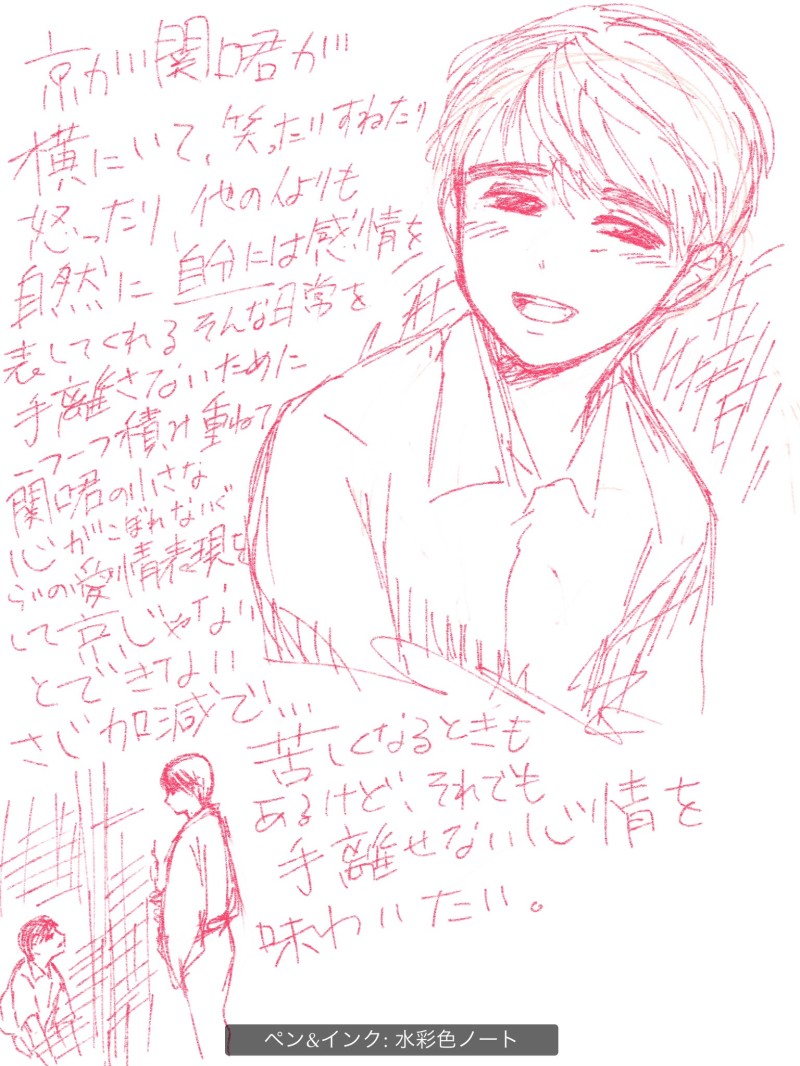 京が関口君が
横にいて、笑ったりすねたり
怒ったり、他の人よりも
自然に自分には感情を
表してくれるそんな日常を
手離さないために
一つ一つ積み重ねて
関口君の小さな
心がこぼれないぐ
らいの愛情表現を
して京じゃない
とできない
さじ加減で…
苦しくなるときも
あるけど、それでも
手離せない心情を
味わいたい。
ペン&インク: 水彩色ノート